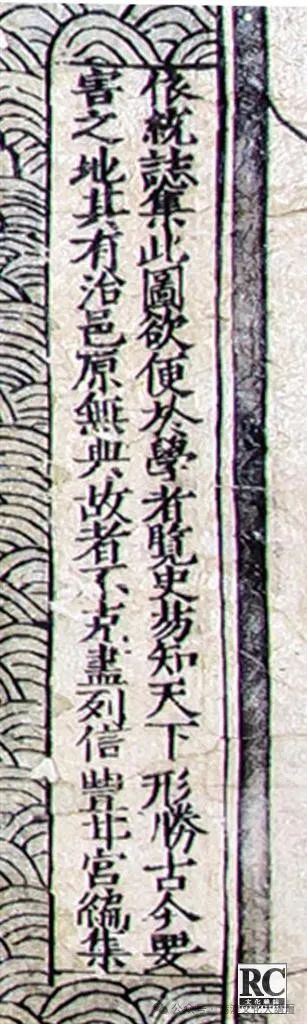 依統誌集此圖欲便於學者覽史易知天下形勝古今要
害之地其有治邑原無典故者不克盡列信豐甘宮編集
RC
文化雜誌